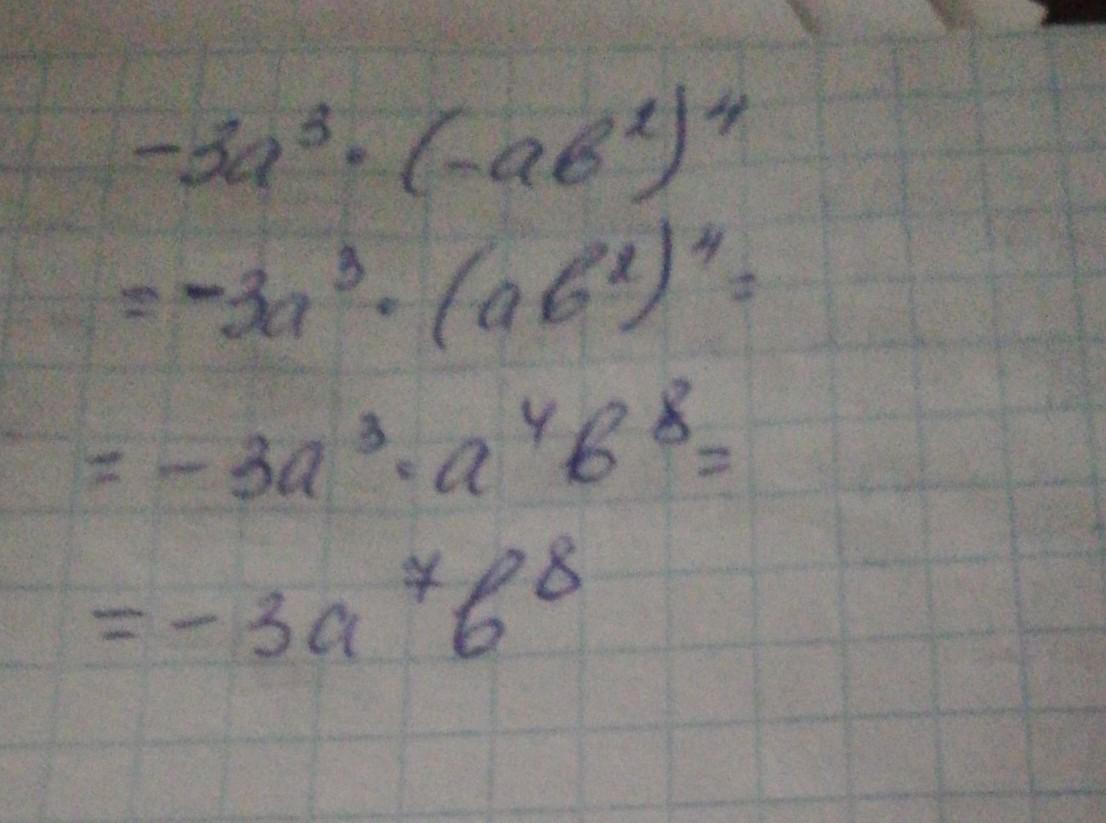 -3a³ · (-ab²)⁴
= -3a³ · (ab²)⁴ =
= -3a³ · a⁴b⁸ =
= -3a⁷b⁸